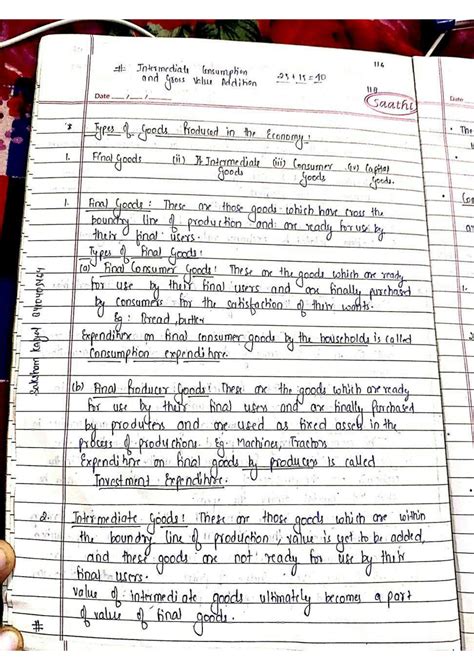 116
# Intermediate Consumption
and Gross Value Addition
25+15=40
118
Date __/__/__
Saathi
Date
* Types of Goods Produced in the Economy:
1. Final Goods (ii) Intermediate Goods (iii) Consumer Goods (iv) Capital Goods.
1. Final Goods: These are those goods which have cross the
boundry line of production and are ready for use by
their final users.
Types of Final Goods:
(a) Final Consumer Goods: These are the goods which are ready
for use by their final users and are finally purchased
by consumers for the satisfaction of their wants.
Eg: Bread, butter
Expenditure on final consumer goods by the households is called
Consumption expenditure.
(b) Final Producer Goods: These are the goods which are ready
for use by their final users and are finally purchased
by producers and are used as fixed assets in the
process of productions. Eg: Machines, Tractors
Expenditure on final goods by producers is called
Investment Expenditure.
2. Intermediate Goods: These are those goods which are within
the boundry line of production, value is yet to be added,
and these goods are not ready for use by their
final users.
value of intermediate goods ultimately becomes a part
of value of final goods.
#